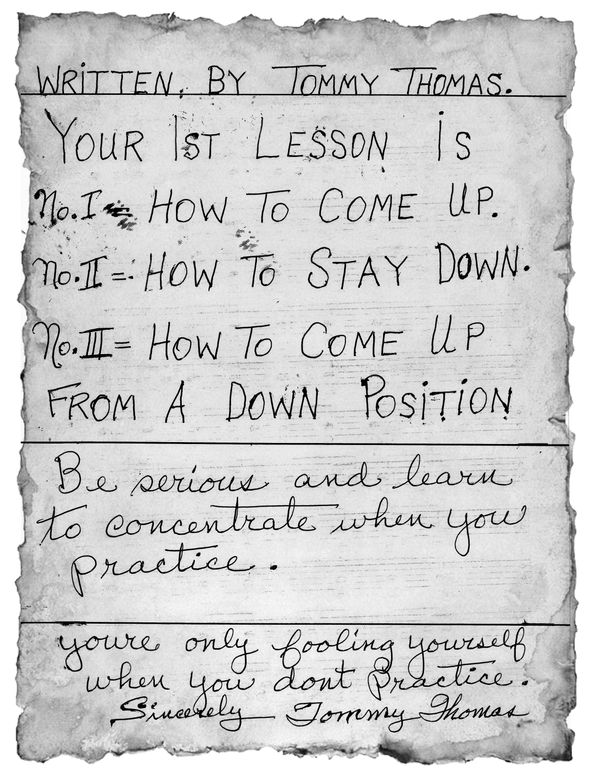 WRITTEN, BY TOMMY THOMAS.
YOUR 1ST LESSON IS
No. I = HOW TO COME UP.
No. II = HOW TO STAY DOWN.
No. III = HOW TO COME UP
FROM A DOWN POSITION
Be serious and learn
to concentrate when you
practice.
youre only fooling yourself
when you dont Practice.
Sincerely Tommy Thomas